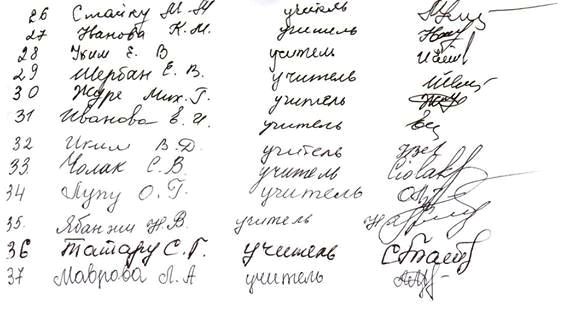 26 Стайку М. М учитель
27 Иванова К. М. учитель
28 Уким Е. В учитель
29 Щербан Е. В. учитель
30 Журе Мих. Г. учитель
31 Иванова Е. И. учитель
32 Иким В. Д. учитель
33 Чолак С. В. учитель Ciolak
34 Лупу О. Г. учитель
35. Ябанжи Н. В учитель
36 Татару С. Г. учитель
37 Маврова Л. А учитель